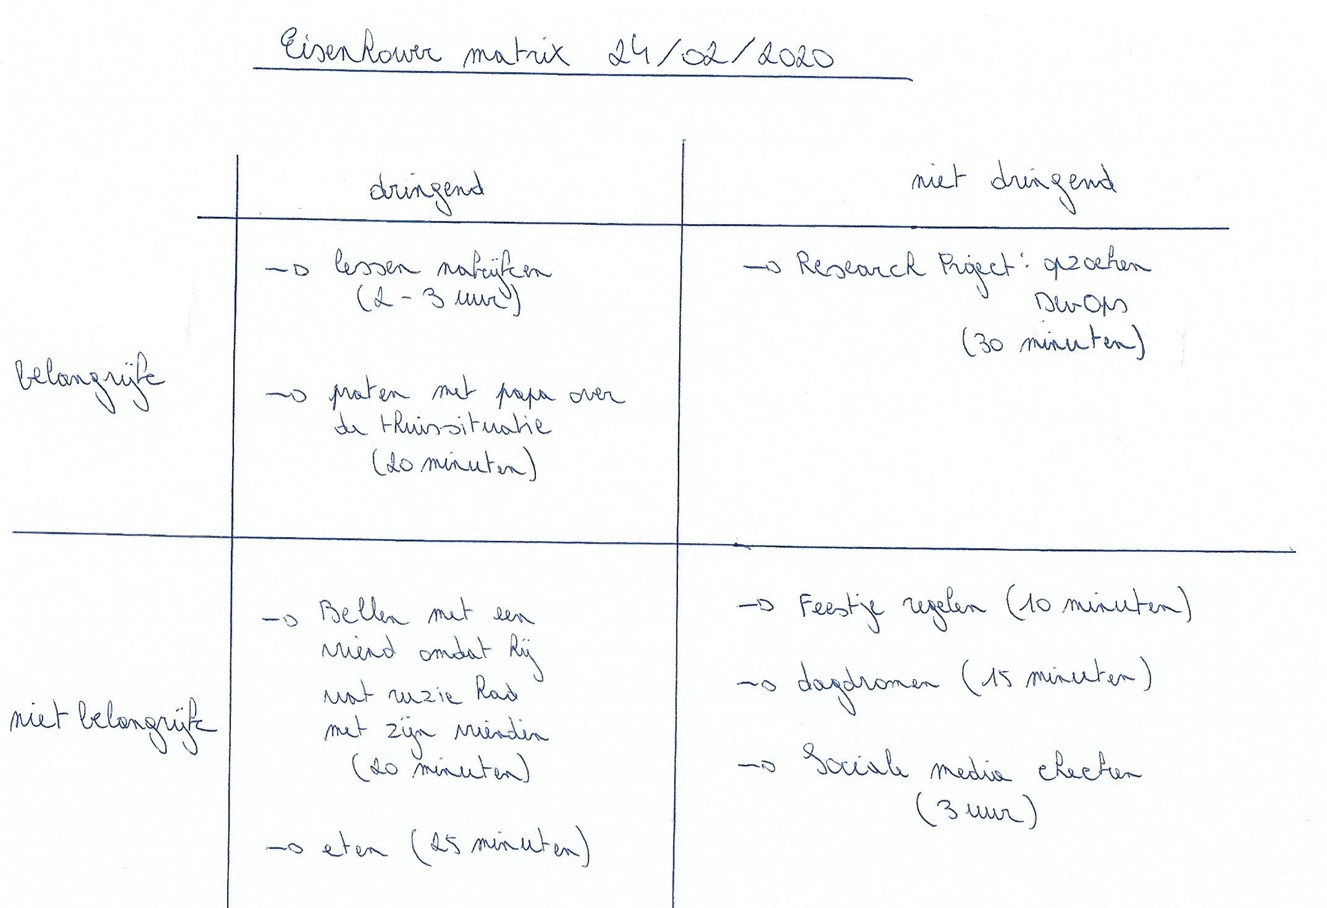 Eisenhower matrix 24/02/2020
dringend
niet dringend
belangrijk
→ lessen nakijken
(2-3 uur)
→ praten met papa over
de thuissituatie
(20 minuten)
→ Research Project: opzoeken
DevOps
(30 minuten)
niet belangrijk
→ Bellen met een
vriend omdat hij
wat ruzie had
met zijn vriendin
(20 minuten)
→ eten (25 minuten)
→ Feestje regelen (10 minuten)
→ dagdromen (15 minuten)
→ Sociale media checken
(3 uur)